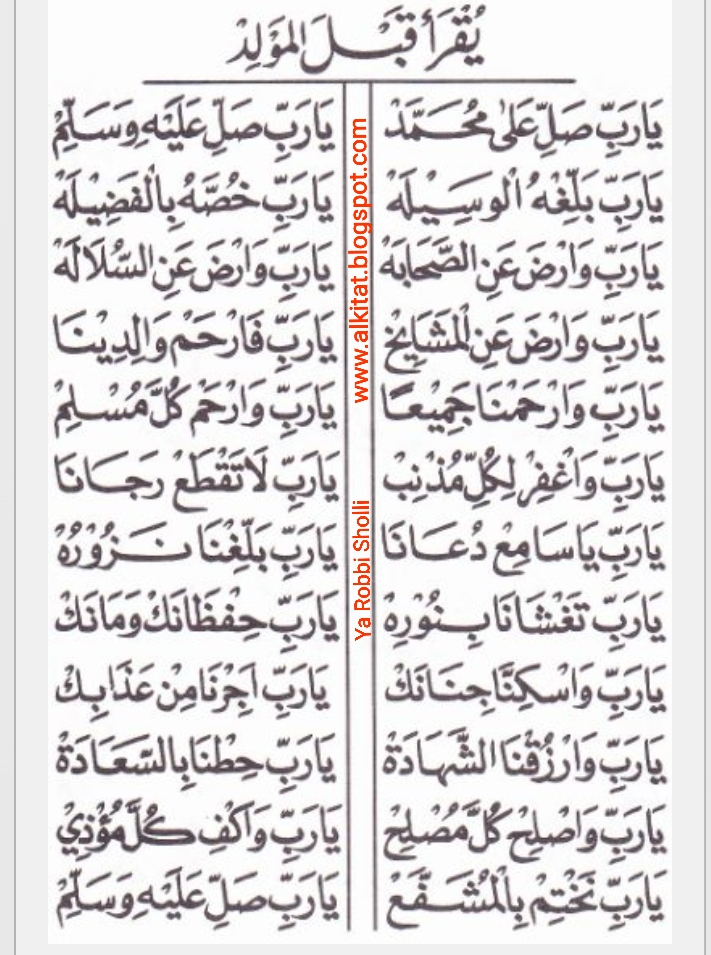 يُقْرَأُ قَبْلَ الْمَوْلِدْ
يَارَبِّ صَلِّ عَلٰى مُحَمَّدْ يَارَبِّ صَلِّ عَلَيْهِ وَسَلِّمْ
يَارَبِّ بَلِّغْهُ الْوَسِيْلَهْ يَارَبِّ خُصَّهُ بِالْفَضِيْلَهْ
يَارَبِّ وَارْضَ عَنِ الصَّحَابَهْ يَارَبِّ وَارْضَ عَنِ السُّلَالَهْ
يَارَبِّ وَارْضَ عَنِ الْمَشَايِخْ يَارَبِّ فَارْحَمْ وَالِدِيْنَا
يَارَبِّ وَارْحَمْنَا جَمِيْعًا يَارَبِّ وَارْحَمْ كُلَّ مُسْلِمْ
يَارَبِّ وَاغْفِرْ لِكُلِّ مُذْنِبْ يَارَبِّ لَا تَقْطَعْ رَجَانَا
يَارَبِّ يَاسَامِعْ دُعَانَا يَارَبِّ بَلِّغْنَا نَزُوْرُهْ
يَارَبِّ تَغْشَانَا بِنُوْرِهْ يَارَبِّ حِفْظَانَكْ وَمَانَكْ
يَارَبِّ وَاسْكِنَّا جِنَانَكْ يَارَبِّ اَجِرْنَا مِنْ عَذَابِكْ
يَارَبِّ وَارْزُقْنَا الشَّهَادَةْ يَارَبِّ حِطْنَا بِالسَّعَادَةْ
يَارَبِّ وَاصْلِحْ كُلَّ مُصْلِحْ يَارَبِّ وَاكْفِ كُلَّ مُؤْذِيْ
يَارَبِّ نَخْتِمْ بِالْمُشَفَّعْ يَارَبِّ صَلِّ عَلَيْهِ وَسَلِّمْ
www.alkitat.blogspot.com
Ya Robbi Sholli